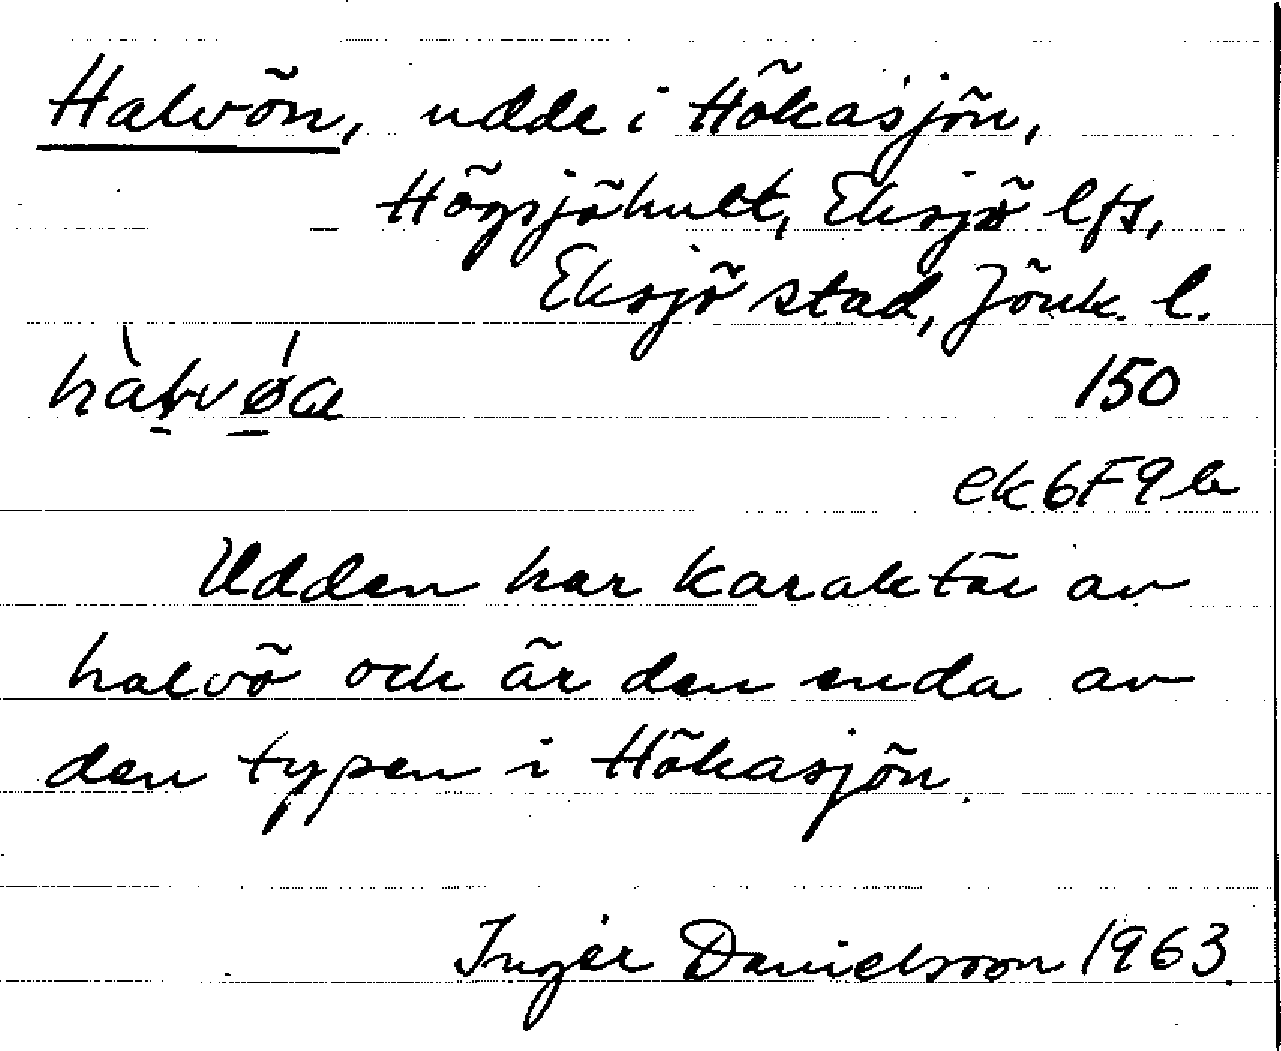 Halvön, udde i Hökasjön,
Högsjöhult, Eksjö lfs,
Eksjö stad, Jönk. l.
150
ek 6F9b
Udden har karaktär av
halvö och är den enda av
den typen i Hökasjön.
Inger Danielsson 1963